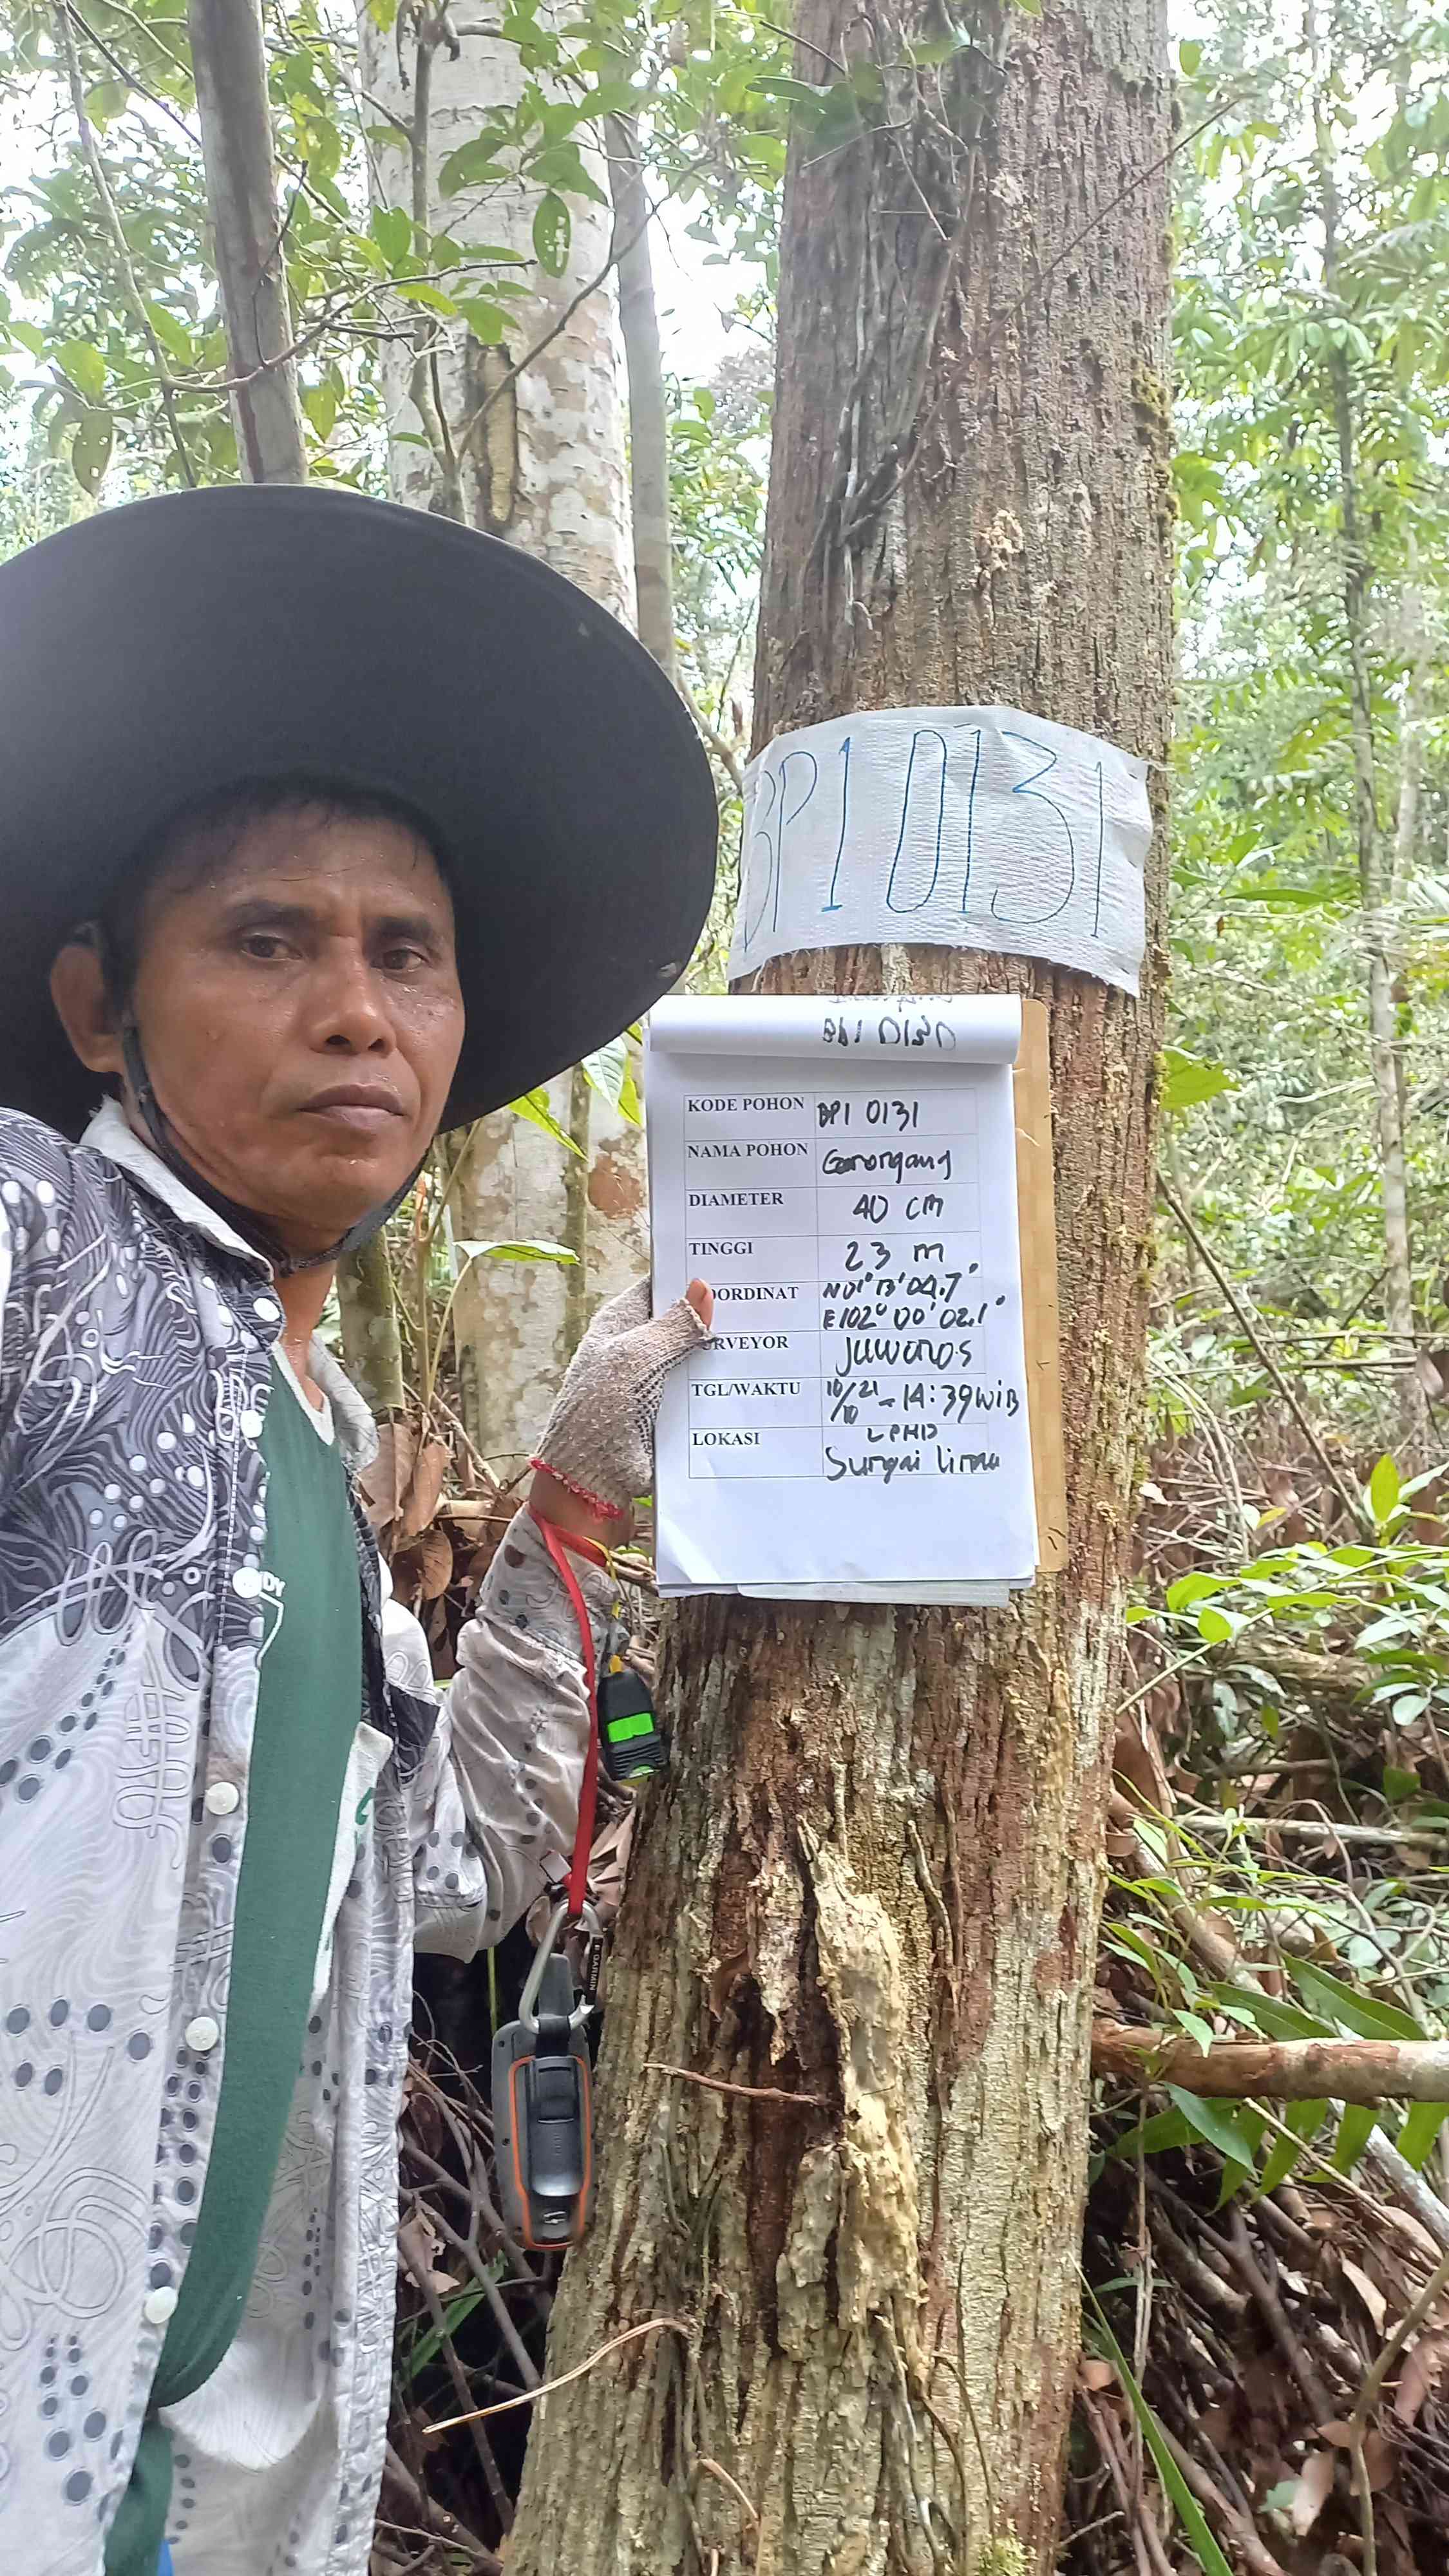 BPI 0131
BPI 0130
KODE POHON BPI 0131
NAMA POHON Gerongang
DIAMETER 40 cm
TINGGI 23 m
OORDINAT N01° 13' 04.7"
E102° 00' 02.1"
RVEYOR JUWONO.S
TGL/WAKTU 10/10 21 - 14:39 WIB
LOKASI LPHD
Sungai linau
GARMIN